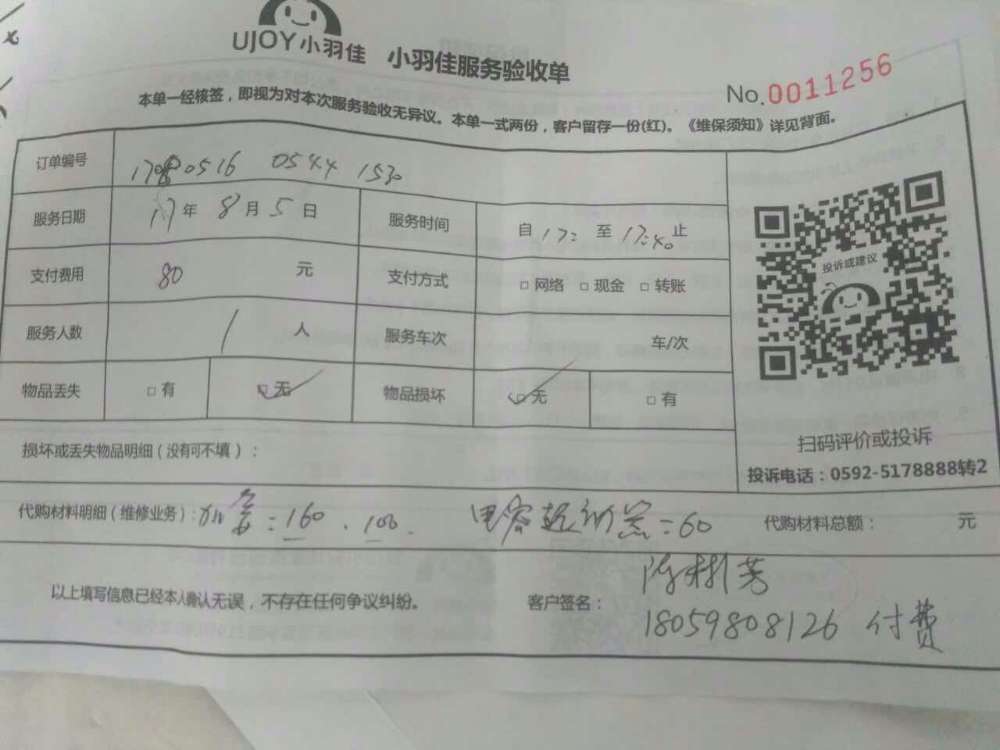 UJOY小羽佳 小羽佳服务验收单
No.0011256
本单一经核签，即视为对本次服务验收无异议。本单一式两份，客户留存一份(红)。《维保须知》详见背面。
订单编号 17080516 0544 1530
服务日期 17年 8月 5日 服务时间 自 17: 至 17:40 止
支付费用 80 元 支付方式 □网络 □现金 □转账
投诉或建议
服务人数 1 人 服务车次 车/次
物品丢失 □有 □无 物品损坏 □无 □有
扫码评价或投诉
投诉电话：0592-5178888转2
损坏或丢失物品明细（没有可不填）：
代购材料明细（维修业务）： =160 . 100 . 电容 =60 代购材料总额： 元
以上填写信息已经本人确认无误，不存在任何争议纠纷。 客户签名： 陈 芳
18059808126 付费